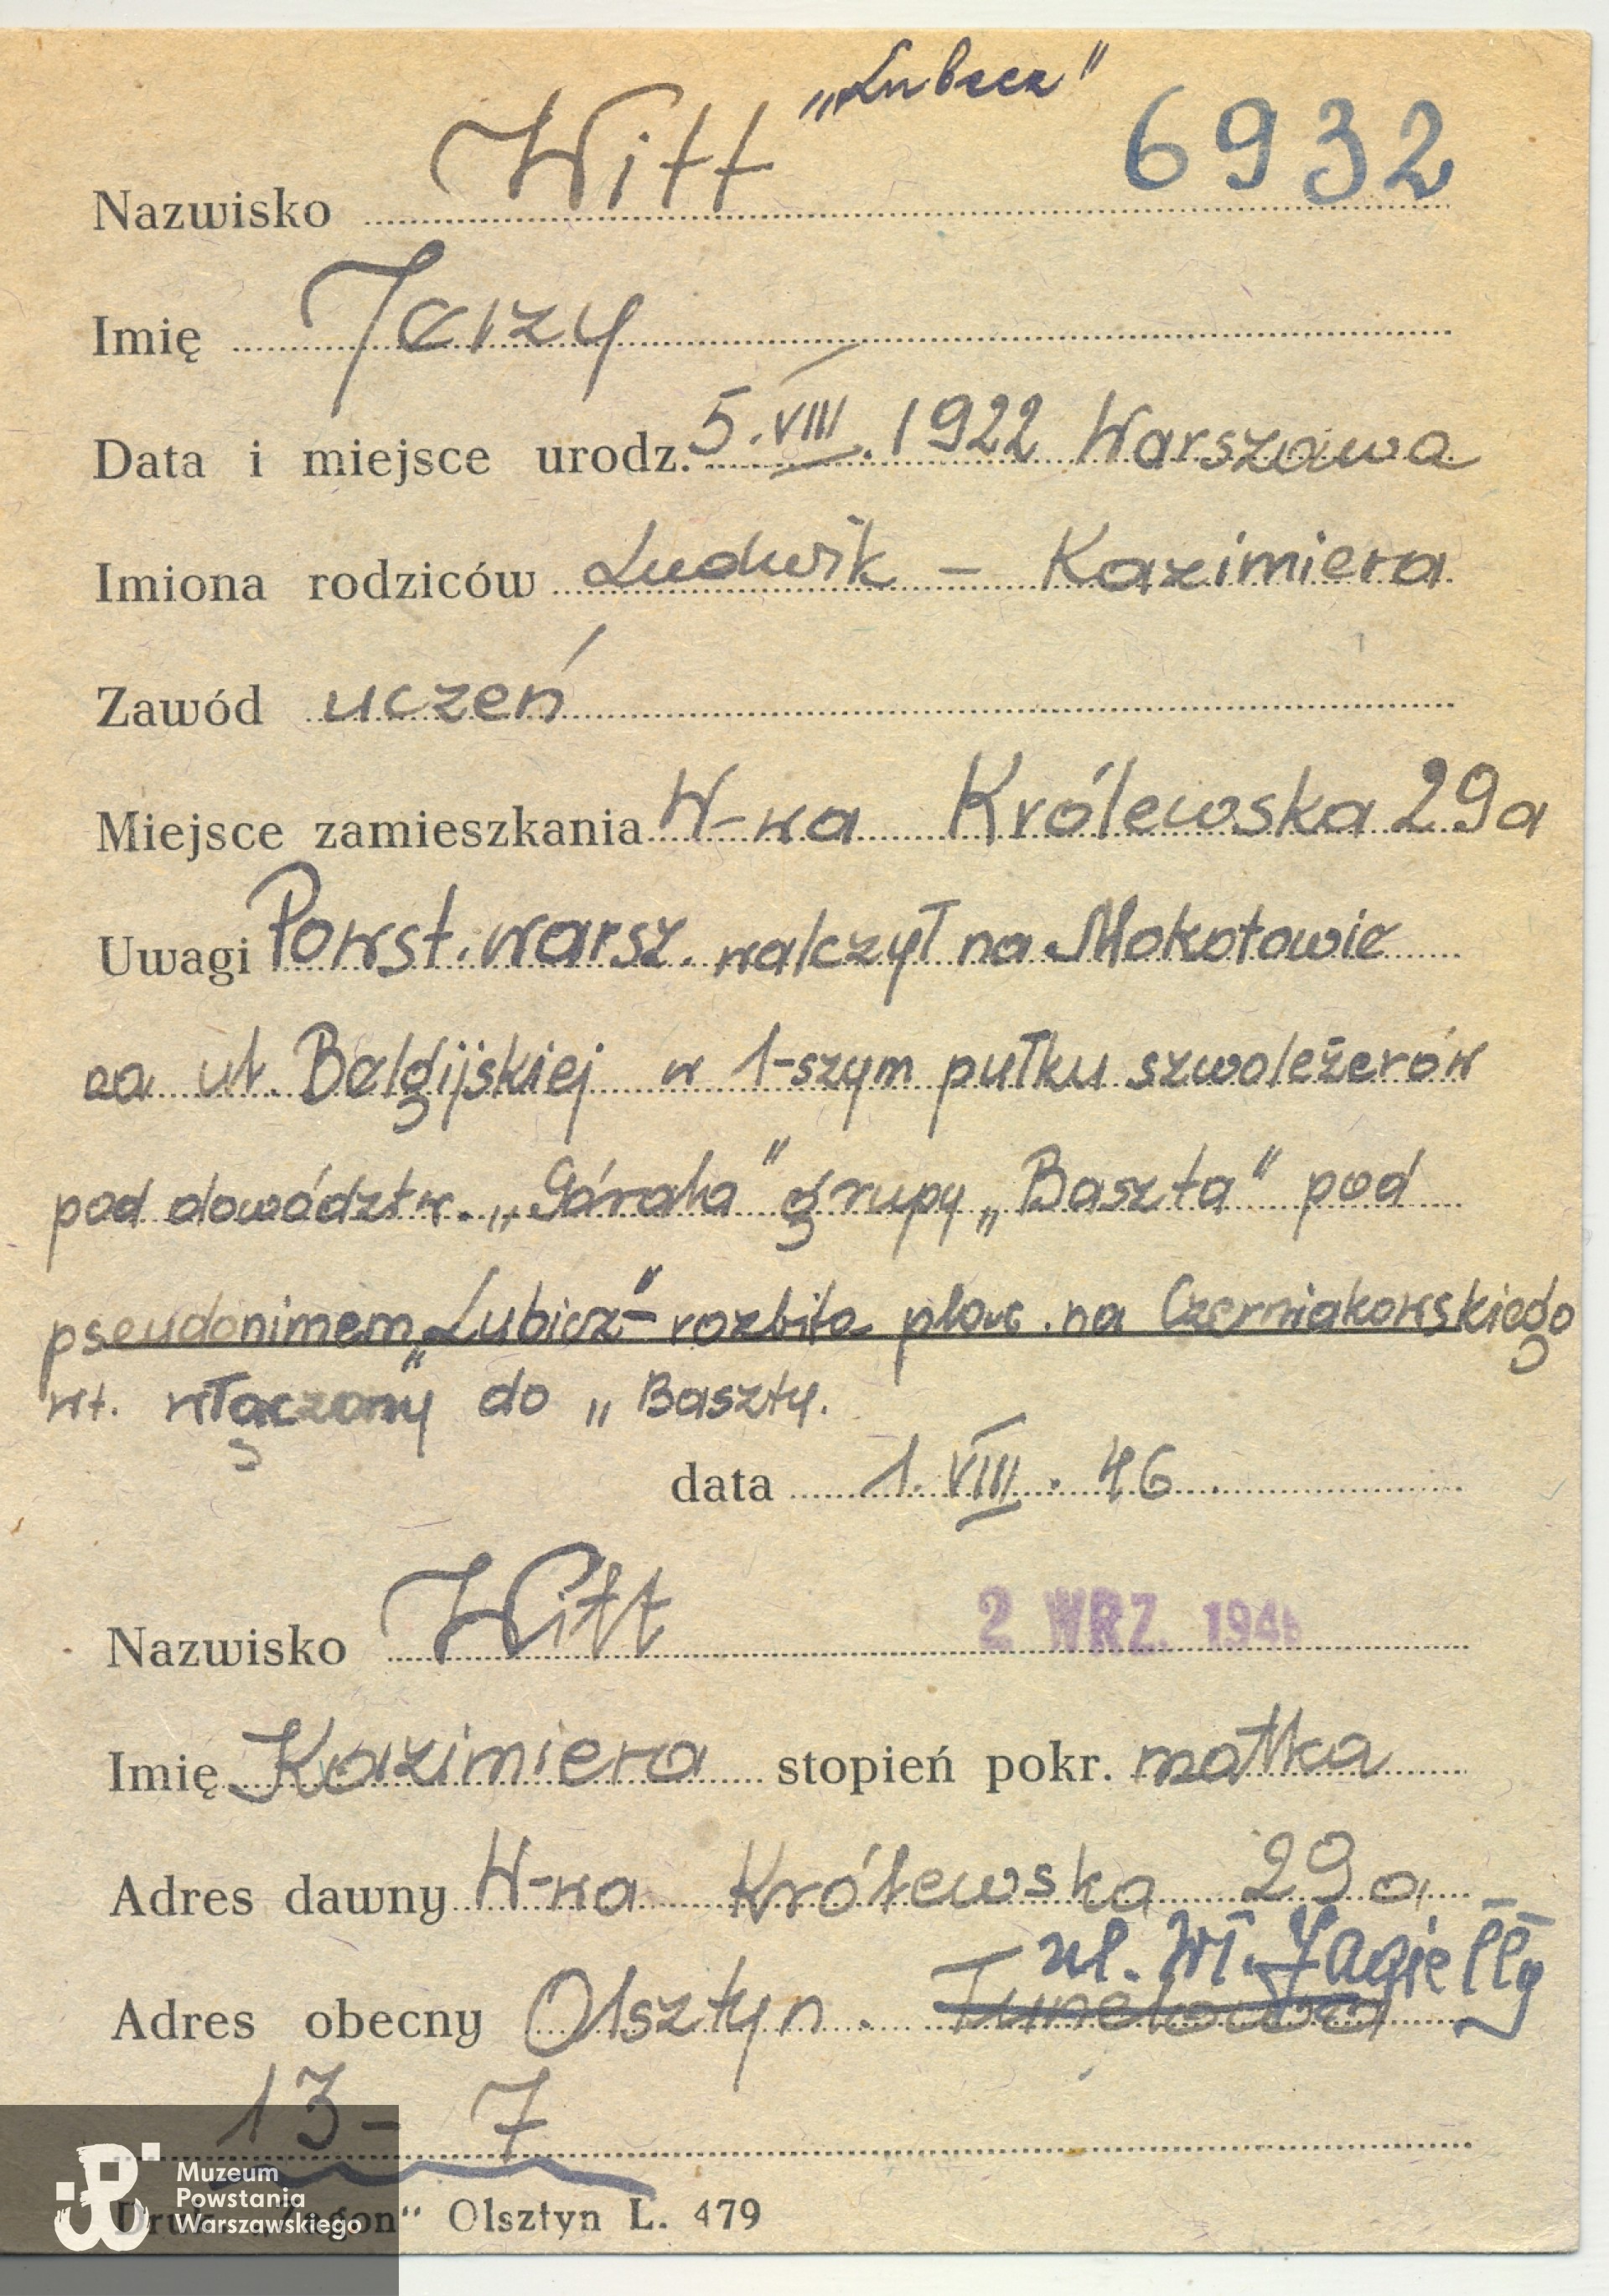 „Lubecz"
6932
Nazwisko Witt
Imię Jerzy
Data i miejsce urodz. 5.VIII.1922 Warszawa
Imiona rodziców Ludwik – Kazimiera
Zawód uczeń
Miejsce zamieszkania W-wa Królewska 29a
Uwagi Powst. warsz. walczył na Mokotowie
na ul. Belgijskiej w 1-szym pułku szwoleżerów
pod dowództw. „Górala" grupy „Baszta" pod
pseudonimem „Lubicz" – rozbita plac. na Czerniakowskiego
włączony do „Baszty.
data 1.VIII.46
Nazwisko Witt 2 WRZ. 1946
Imię Kazimiera stopień pokr. matka
Adres dawny W-wa Królewska 29a
ul. Wł. Jagiełły
Adres obecny Olsztyn. Tunelowa
13 – 7
Druk „Zagon" Olsztyn L. 479
Muzeum
Powstania
Warszawskiego